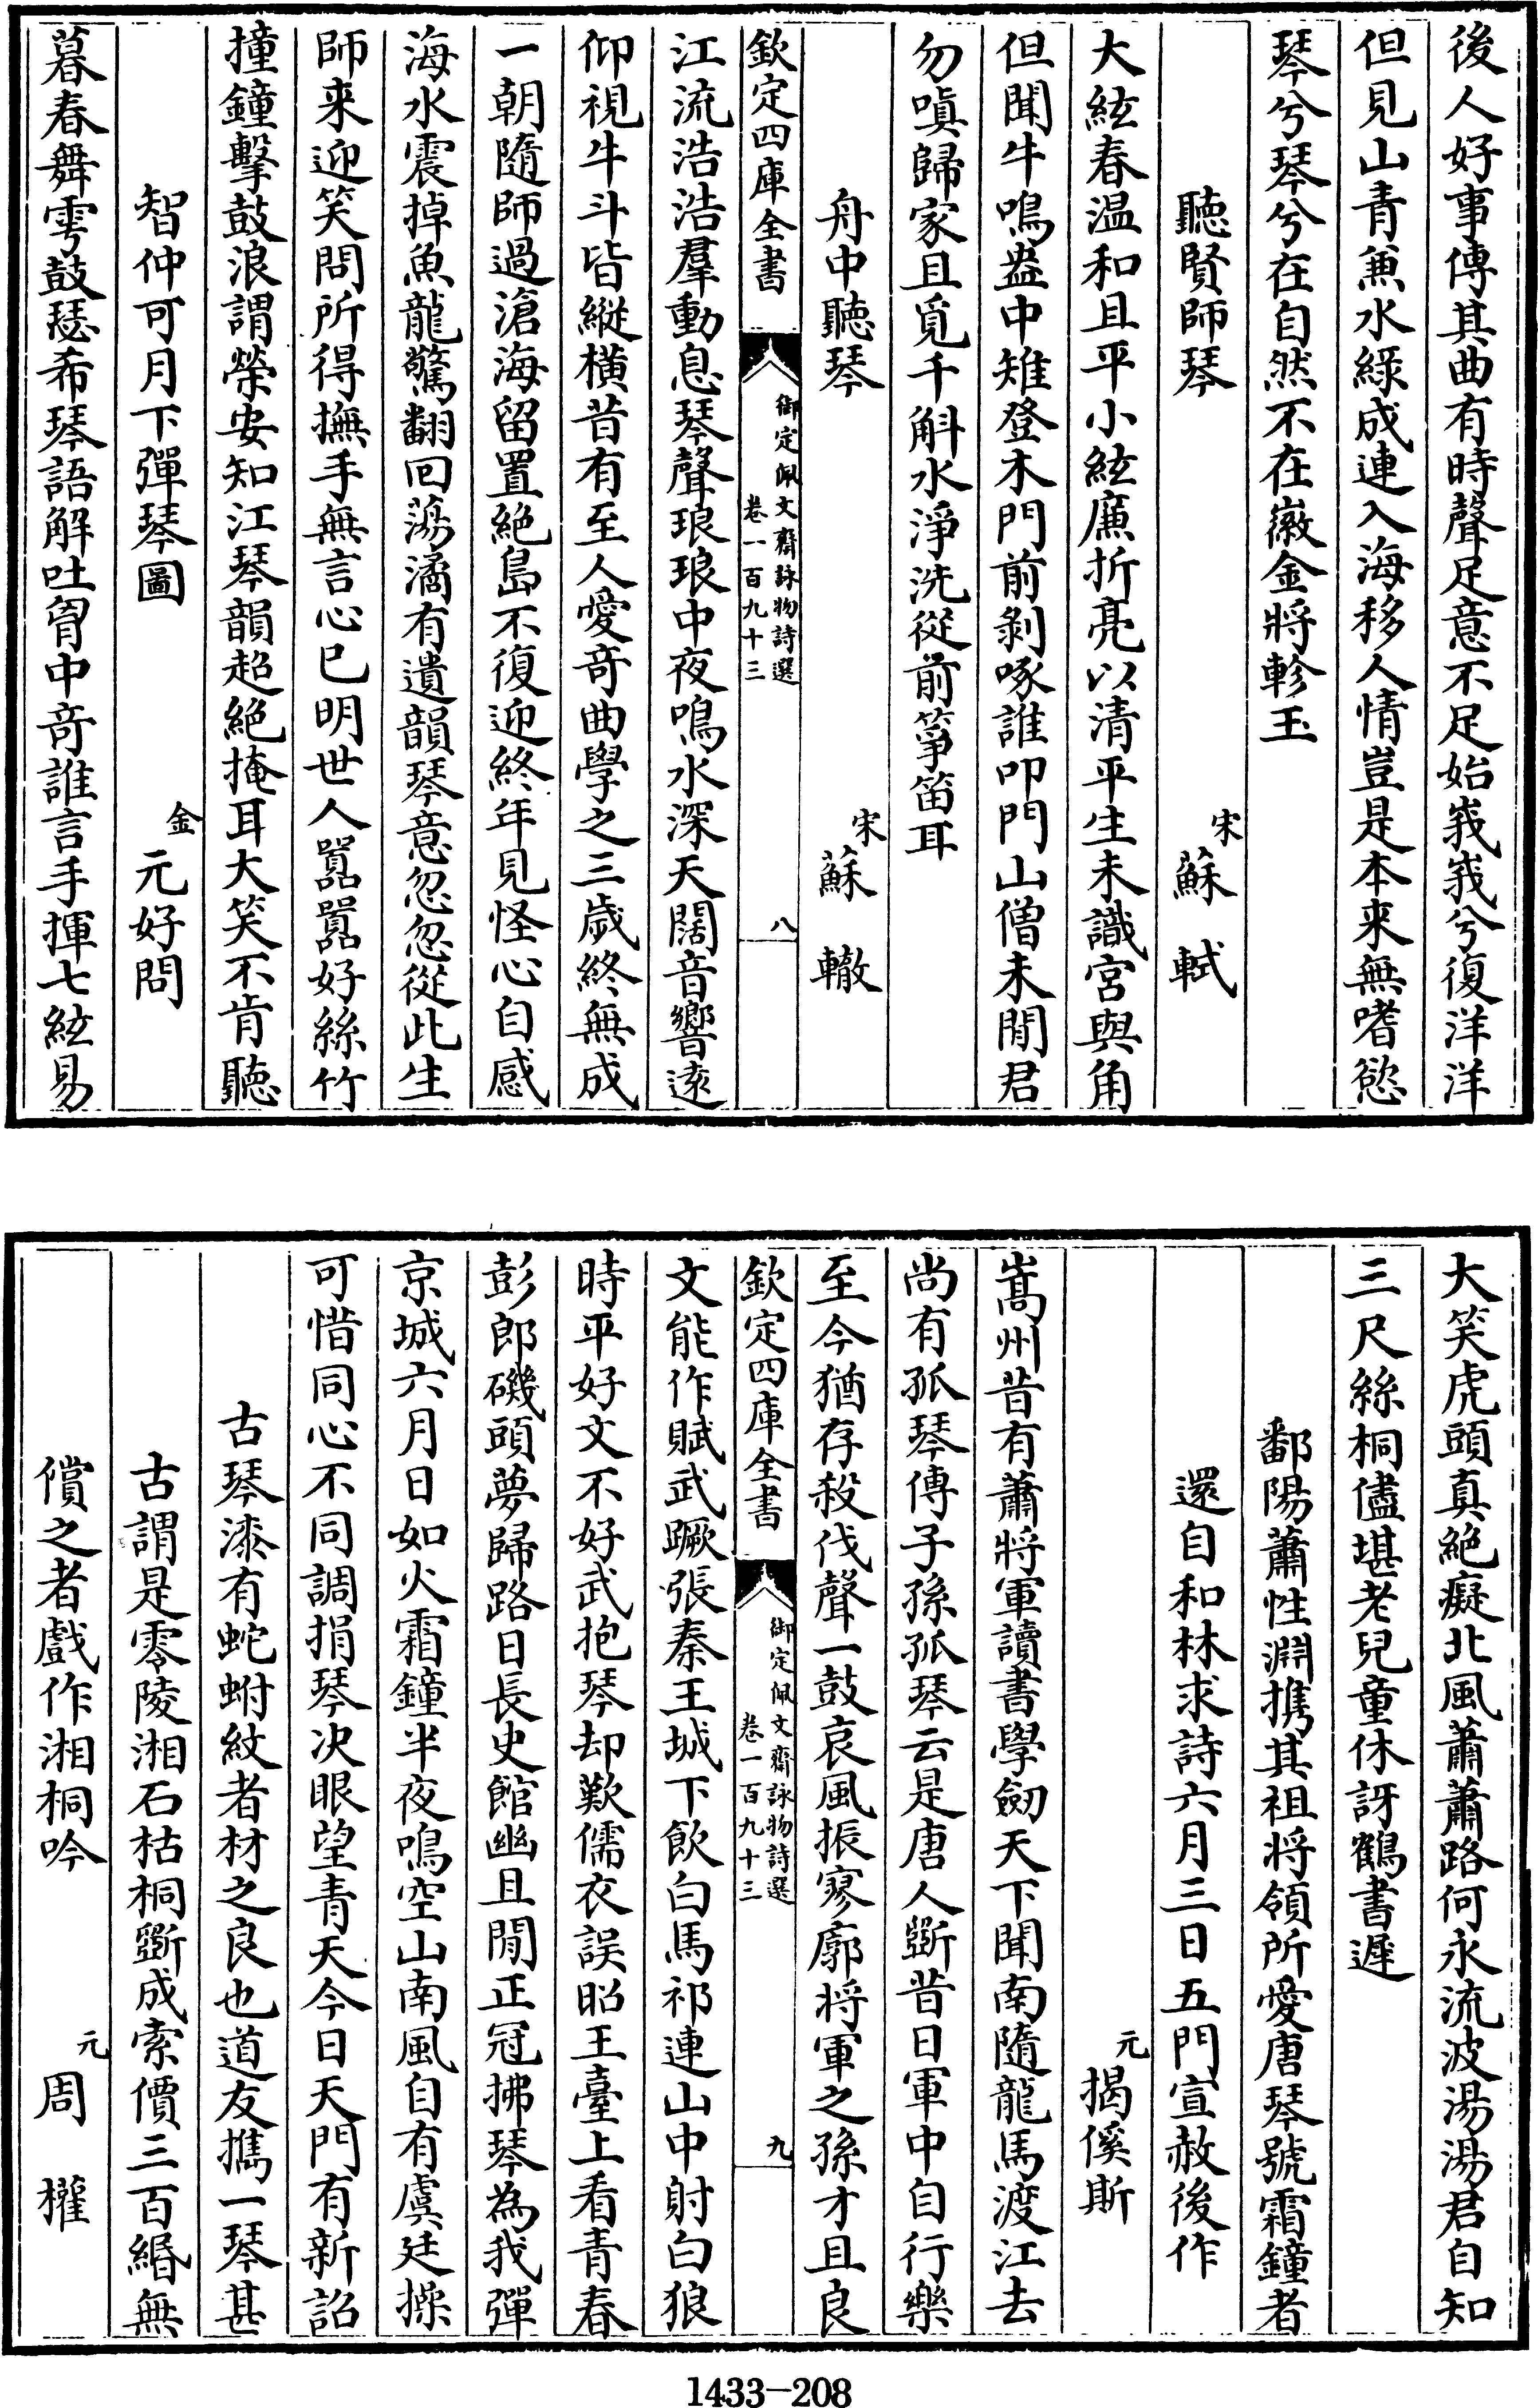 後人好事傳其曲有時聲足意不足始峩峩兮復洋洋
但見山青兼水綠成連入海移人情豈是本来無嗜慾
琴兮琴兮在自然不在徽金將軫玉
聽賢師琴 宋蘇軾
大絃春温和且平小絃廉折亮以清平生未識宮與角
但聞牛鳴盎中雉登木門前剝啄誰叩門山僧未閒君
勿嗔歸家且覓千斛水淨洗從前箏笛耳
舟中聽琴 宋蘇轍
欽定四庫全書 御定佩文齋詠物詩選 卷一百九十三 八
江流浩浩羣動息琴聲琅琅中夜鳴水深天闊音響遠
仰視牛斗皆縱橫昔有至人愛奇曲學之三歲終無成
一朝隨師過滄海留置絕島不復迎終年見怪心自感
海水震掉魚龍驚翻回蕩潏有遺韻琴意忽忽從此生
師来迎笑問所得撫手無言心已明世人嚚嚚好絲竹
撞鐘擊鼓浪謂榮安知江琴韻超絕掩耳大笑不肯聽
智仲可月下彈琴圖 金元好問
暮春舞雩鼓瑟希琴語解吐胷中奇誰言手揮七絃易
大笑虎頭真絕癡北風蕭蕭路何永流波湯湯君自知
三尺絲桐儘堪老兒童休訝鶴書遲
鄱陽蕭性淵攜其祖将領所愛唐琴號霜鐘者
還自和林求詩六月三日五門宣赦後作
元揭傒斯
嵩州昔有蕭將軍讀書學劒天下聞南隨龍馬渡江去
尚有孤琴傳子孫孤琴云是唐人斲昔日軍中自行樂
至今猶存殺伐聲一鼓哀風振寥廓将軍之孫才且良
欽定四庫全書 御定佩文齋詠物詩選 卷一百九十三 九
文能作賦武蹶張秦王城下飲白馬祁連山中射白狼
時平好文不好武抱琴却歎儒衣誤昭王臺上看青春
彭郎磯頭夢歸路日長史館幽且閒正冠拂琴為我彈
京城六月日如火霜鐘半夜鳴空山南風自有虞廷操
可惜同心不同調捐琴決眼望青天今日天門有新詔
古琴漆有蛇蚹紋者材之良也道友攜一琴甚
古謂是零陵湘石枯桐斲成索價三百緡無
償之者戲作湘桐吟 元周權
1433-208